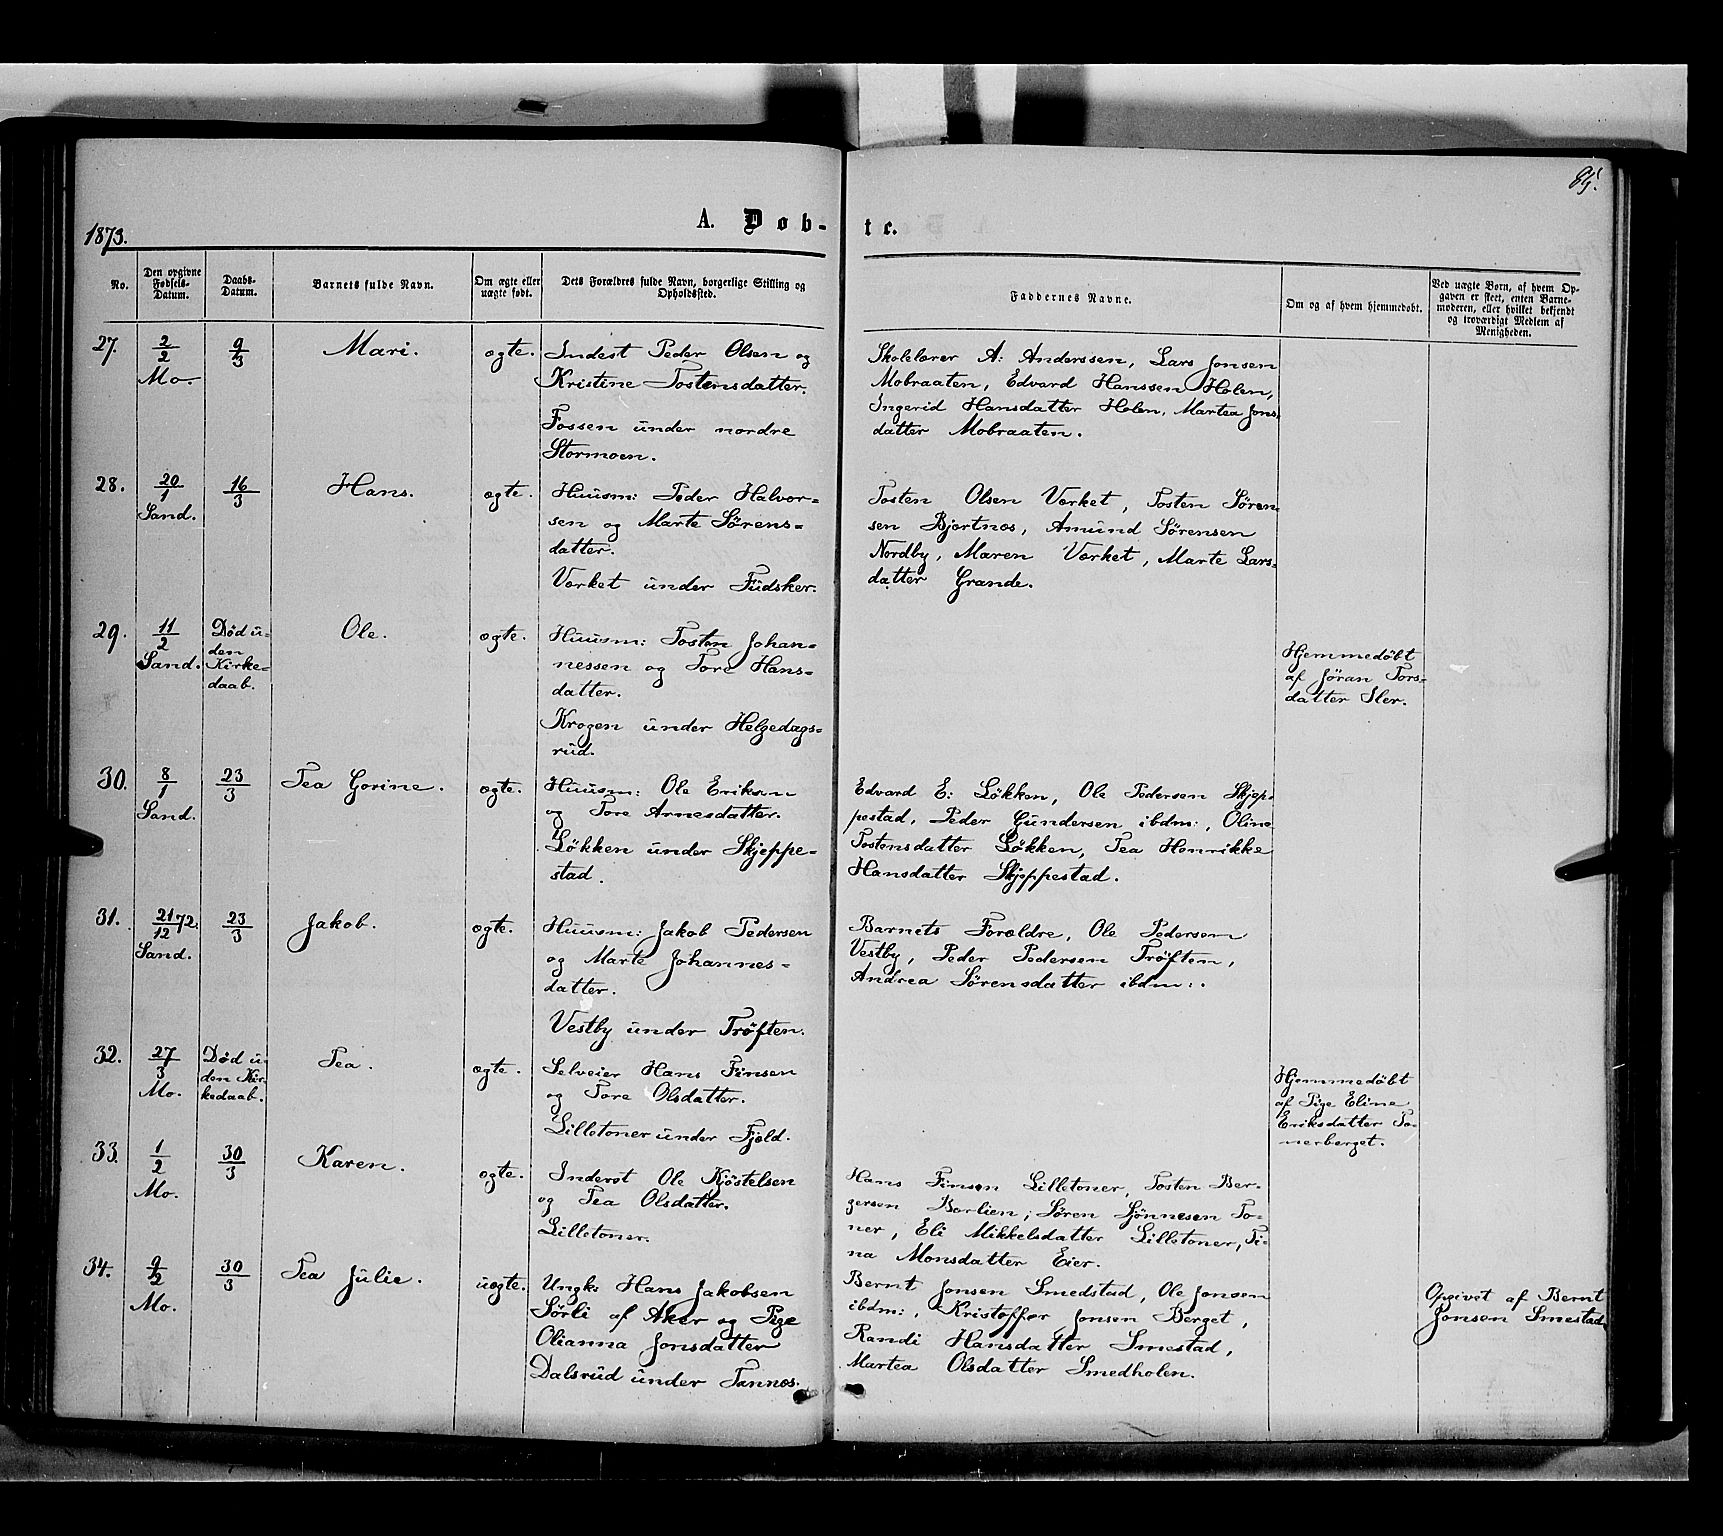 85.
1873.
A. Døb-
te.
No.
Den opgivne
Fødsels-
Datum.
Daabs-
Datum.
Barnets fulde Navn.
Om ægte eller
uægte født.
Dets Forældres fulde Navn, borgerlige Stilling og
Opholdssted.
Faddernes Navne.
Om og af hvem hjemmedøbt.
Ved uægte Børn, af hvem Op-
gaven er skeet, enten Barne-
moderen, eller hvilket bekjendt
og troværdigt Medlem af
Menigheden.
27.
2/2
Mo.
9/3
Mari.
ægte.
Inderst Peder Olsen og
Kristine Tostensdatter.
Fossen under nordre
Stormoen.
Skolelærer A: Anderssen, Lars Jonsen
Mobraaten, Edvard Hanssen Holen,
Ingerid Hansdatter Holen, Martea Jons-
datter Mobraaten.
28.
20/1
Sand.
16/3
Hans.
ægte.
Huusm: Peder Halvor-
sen og Marte Sørens-
datter.
Værket under Fudsker.
Tosten Olsen Værket, Tosten Søren-
sen Bjørtnæs, Amund Sørensen
Nordby, Maren Værket, Marte Lars-
datter Grande.
29.
11/2
Sand.
Død u-
den
Kirke-
daab.
Ole.
ægte.
Huusm: Tosten Johan-
nessen og Tore Hans-
datter.
Krogen under Helgedags-
rud.
Hjemmedøbt
af Jøran Tors-
datter Sler.
30.
8/1
Sand.
23/3
Tea Gorine.
ægte.
Huusm: Ole Eriksen
og Tore Arnesdatter.
Løkken under Skjeppe-
stad.
Edvard E: Løkken, Ole Pedersen Skjep-
pestad, Peder Gundersen ibdm:, Oline
Tostensdatter Løkken, Tea Henrikke
Hansdatter Skjeppestad.
31.
21/12 72.
Sand.
23/3
Jakob.
ægte.
Huusm: Jakob Pedersen
og Marte Johannes-
datter.
Vestby under Trøften.
Barnets Forældre, Ole Pedersen
Vestby, Peder Pedersen Trøften,
Andrea Sørensdatter ibdm:.
32.
27/3
Mo.
Død u-
den Kir-
kedaab.
Tea.
ægte.
Selveier Hans Finsen
og Tore Olsdatter.
Lilletoner under Fjeld.
Hjemmedøbt
af Pige Eline
Eriksdatter To-
nerberget.
33.
1/2
Mo.
30/3
Karen.
ægte.
Inderst Ole Kjøstelsen
og Tea Olsdatter.
Lilletoner.
Hans Finsen Lilletoner, Tosten Ber-
gersen Bærlien, Søren Sjønnesen To-
ner, Eli Mikkelsdatter Lilletoner, Ti-
na Monsdatter Eier.
34.
9/2
Mo.
30/3
Tea Julie.
uægte.
Ungk: Hans Jakobsen
Sørli af Aker og Pige
Olianna Jonsdatter
Dalsrud under Tannæs.
Bernt Jonsen Smedstad, Ole Jonsen
ibdm:, Kristoffer Jonsen Berget,
Randi Hansdatter Smestad,
Martea Olsdatter Smedholen.
Opgivet af Bernt
Jonsen Smestad.